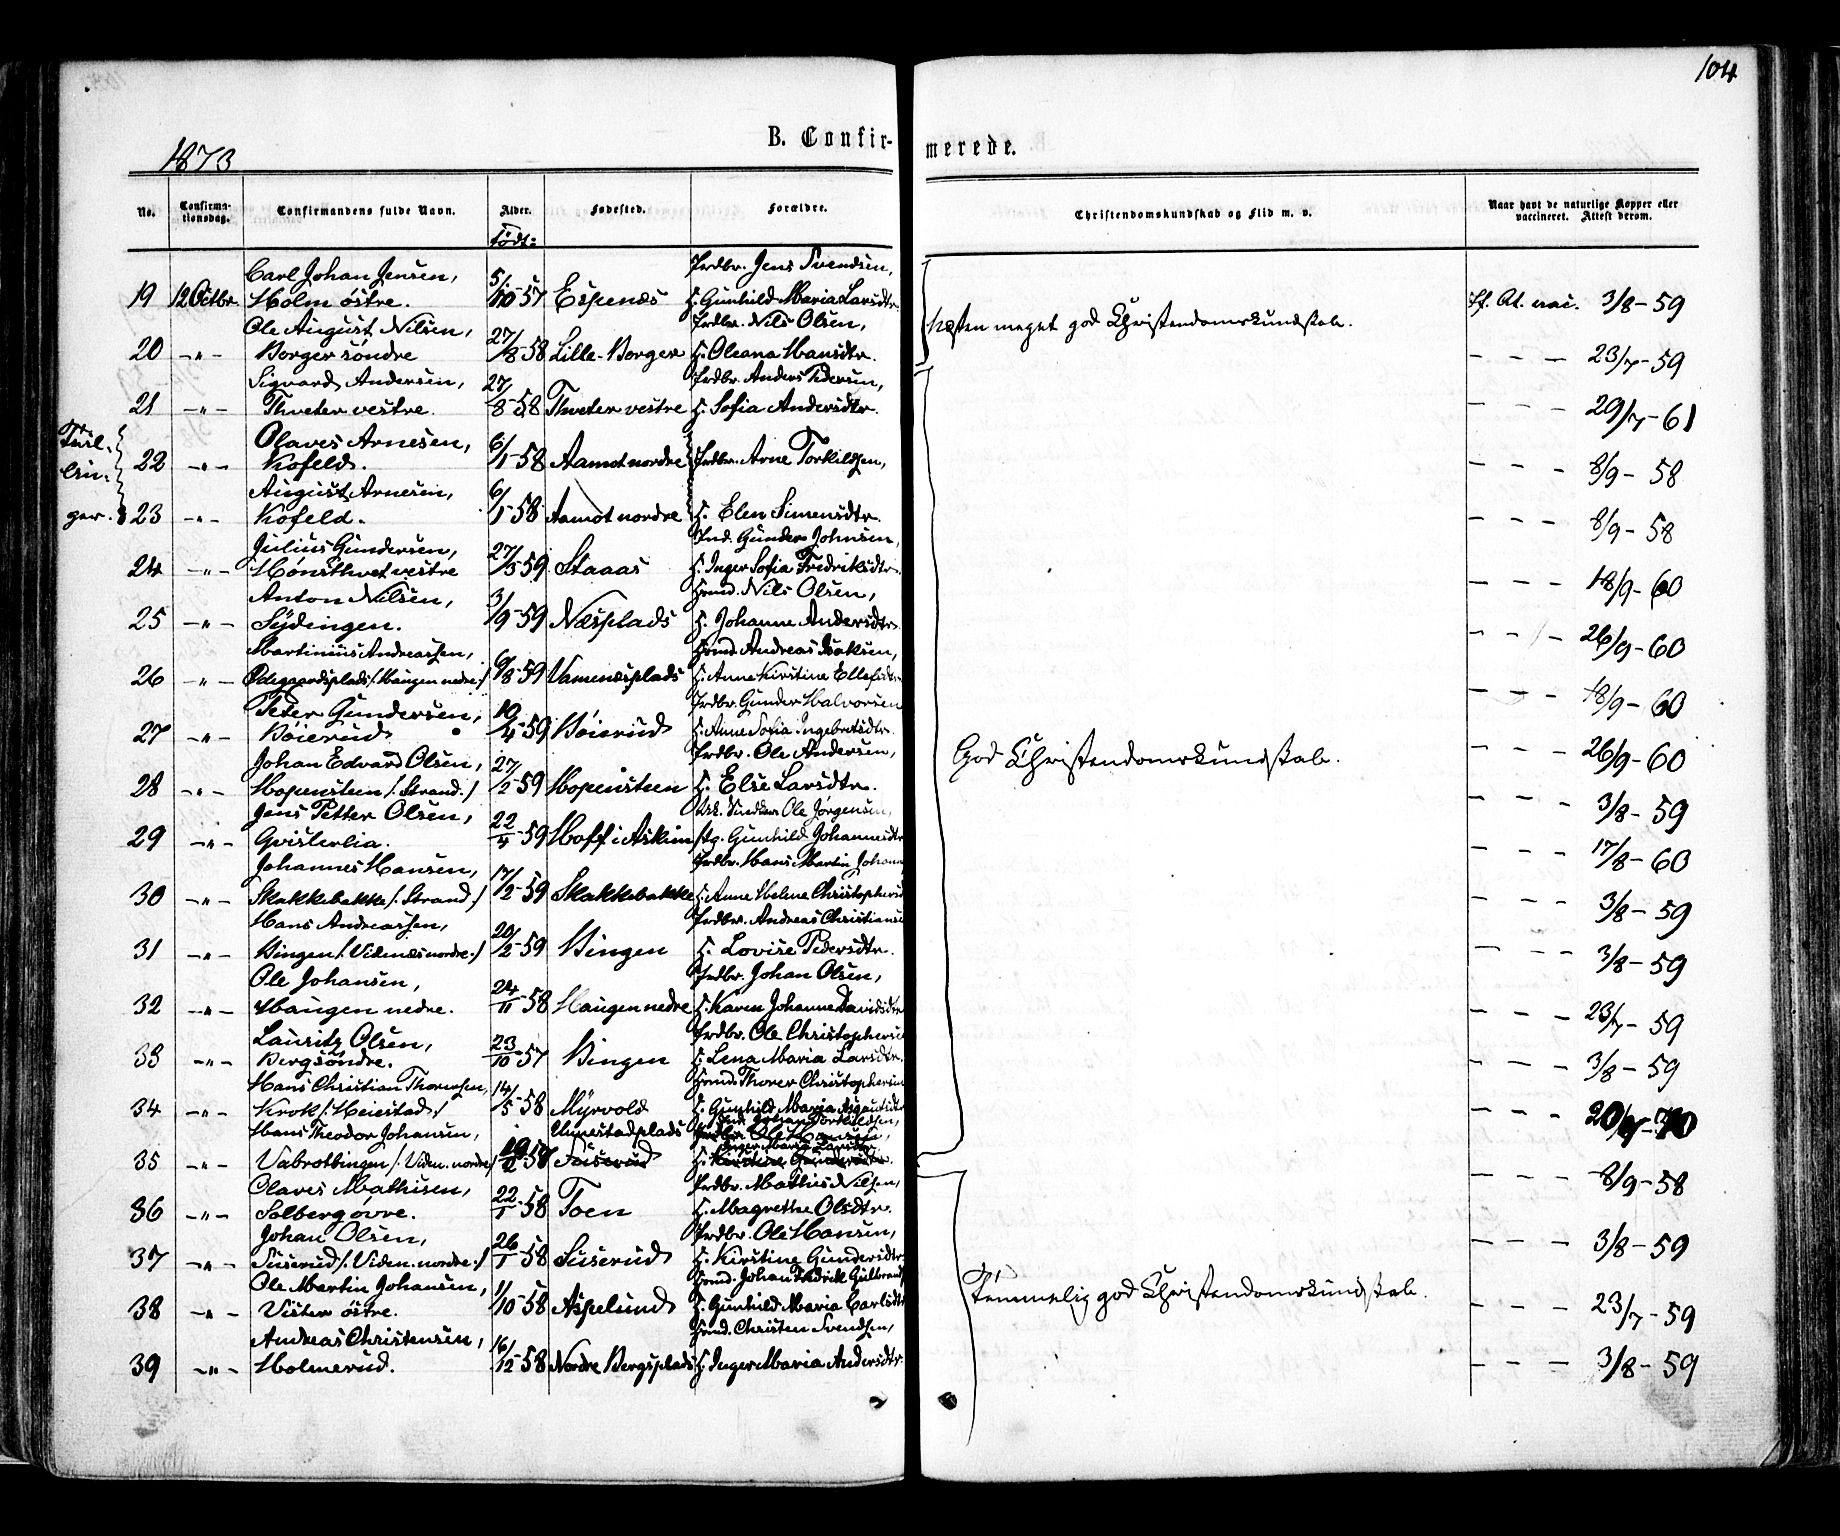 104
1873
B. Confirmerede.
No.
Confirmationsdag.
Confirmandens fulde Navn.
Alder.
Fødested.
Forældre.
Christendomskundskab og Flid m. v.
Naar havt de naturlige Kopper eller vaccineret. Attest derom.
Født:
Carl Johan Jensen, 5/ Grdbr. Jens Svendsen,
19 12 Octbr. Holm östre. 10-57 Espenæs H. Gunhild Maria Larsdtr. If. At. vac. 3/8-59
Ole August Nilsen, 27/ Grdbr. Nils Olsen,
20 -"- Borger söndre 8-58 Lille-Borger H. Oleana Hansdtr. - - - 23/7-59
Næsten meget god Christendomskundskab.
Sigvard Andersen, 27/ Grdbr. Anders Pedersen,
21 -"- Thveter vestre. 8-58 Thveter vestre H. Sofia Andersdtr. - - - 29/7-61
Tvillinger.
Olaves Arnesen, 6/
22 -"- Kofeld. 1-58 Aamot nordre Grdbr. Arne Torkildsen, - - - 8/9-58
August Arnesen, 6/
23 -"- Kofeld. 1-58 Aamot nordre H. Elen Simensdtr. - - - 8/9-58
Julius Gundersen, 27/ Ind. Gunder Johnsen,
24 -"- Hönsthvet vestre 5-59 Staaas H. Inger Sofia Fredriksdtr. - - - 18/9-60
Anton Nilsen, 3/ Hmd. Nils Olsen,
25 -"- Sydingen. 9-59 Næsplads H. Johanne Andersdtr. - - - 26/9-60
Martinius Andreassen, 6/ Hmd. Andreas Isaksen,
26 -"- Ödegaardsplads /:Haugen nedre:/ 8-59 Vamenæsplads H. Anne Kirstine Ellefsdtr. - - - 18/9-60
Peter Gundersen, 10/ Grdbr. Gunder Halvorsen
27 -"- Böierud 4-59 Böierud H. Anne Sofia Ingebretsdtr. - - - 26/9-60
Johan Edvard Olsen, 27/ Grdbr. Ole Andersen,
28 -"- Hopensteen /:Strand:/ 2-59 Hopensteen H. Else Larsdtr. - - - 3/8-59
God Christendomskundskab.
Jens Petter Olsen, 22/ Ole Jörgensen,
29 -"- Gvisterlia. 4-59 Hoff i Askim Gunhild Johannesdtr - - - 17/8-60
Johannes Hansen, 17/ Grdbr. Hans Martin Johann
30 -"- Skakkebakke /:Strand:/ 2-59 Skakkebakke H. Anne Helene Christophers - - - 3/8-59
Hans Andreassen, 20/ Grdbr. Andreas Christians
31 -"- Bingen /:Videnæs nordre:/ 2-59 Bingen H. Lovise Pedersdtr. - - - 3/8-59
Ole Johansen, 24/ Grdbr. Johan Olsen,
32 -"- Haugen nedre. 11-58 Haugen nedre H. Karen Johanne Davidsdtr - - - 23/7-59
Lauritz Olsen, 23/ Grdbr. Ole Christophers
33 -"- Berg söndre. 10-57 Bingen H. Lena Maria Larsdtr. - - - 3/8-59
Hans Christian Thoresen, 14/ Hmd. Thorer Christophersen
34 -"- Krok /:Heiestad:/ 5-58 Myrvold H. Gunhild Maria - - -
Hans Theodor Johansen, Unnestadplads Johan Torkildsen,
35 -"- Vabrotbingen /:Viden. nordre:/ 58 Suserud H. Kirstine Gundersdtr. - - - 8/9-58
Olaves Mathisen, 22/ Grdbr. Mathis Nilsen,
36 -"- Solberg övre. 1-58 Toen H. Magrethe Olsdtr. - - - 3/8-59
Johan Olsen, 26/ Grdbr. Ole Hansen,
37 -"- Suserud /:Viden. nordre:/ 1-58 Suserud H. Kirstine Gundersdtr. - - - 3/8-59
Ole Martin Johansen, 1/ Hmd. Johan Fredrik Gulbrand
38 -"- Vister östre. 10-58 Aspelund H. Gunhild Maria Carlsdtr - - - 23/7-59
Temmelig god Christendomskundskab.
Andreas Christensen, 16/ Hmd. Christen Svendsen,
39 -"- Holmerud. 12-58 Nordre Bergsplads H. Inger Maria Andersdtr. - - - 3/8-59